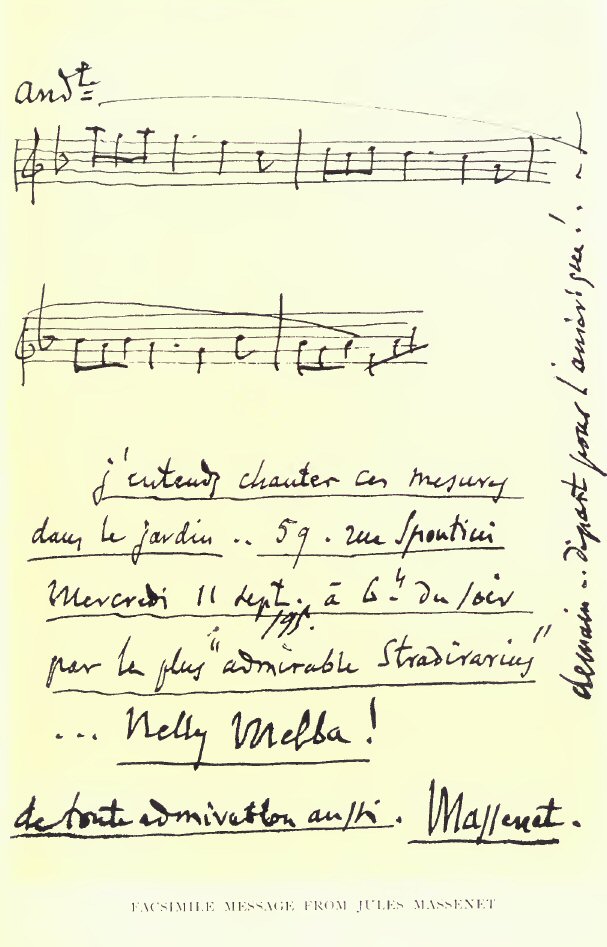 andte
j'entends chanter ces mesures
dans le jardin .. 59. rue Spontini
Mercredi 11 sept. à 6h du soir
par le plus "admirable Stradivarius"
... Nelly Melba!
de toute admiration aussi. Massenet.
demain .. départ pour l'amérique! ..
FACSIMILE MESSAGE FROM JULES MASSENET